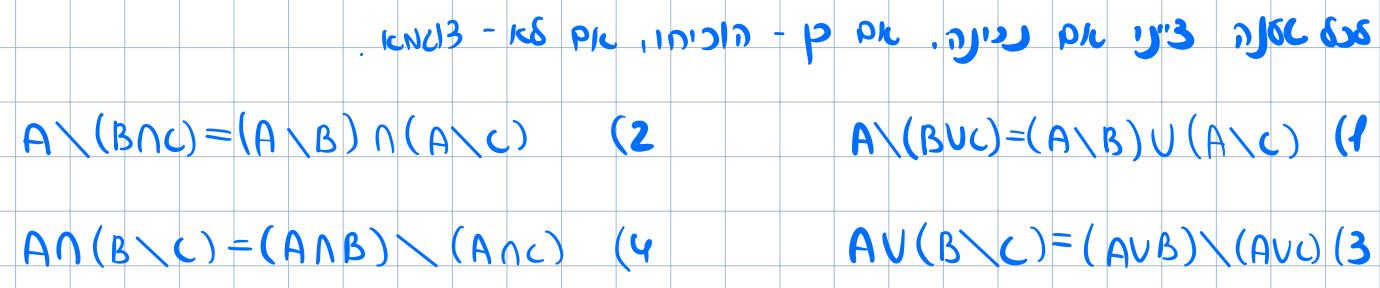 לכל טענה ציינו אם נכונה. אם כן - הוכיחו, אם לא - דוגמא.
1) A\(B∪C)=(A\B)∪(A\C)
2) A\(B∩C)=(A\B)∩(A\C)
3) A∪(B\C)=(A∪B)\(A∪C)
4) A∩(B\C)=(A∩B)\(A∩C)